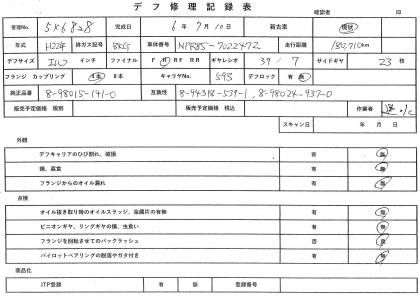 デフ修理記録表
確認者 印
管理No. 5K6828 完成日 6年7月10日 新古車 現状
年式 H22年 排ガス記号 BKG 車体番号 NPR85-7022472 走行距離 180,710km
デフサイズ インチ ファイナル F R RF RR ギヤレシオ 39 / 7 サイドギヤ 23枚
フランジ カップリング 4本 8本 キャリヤNo. 593 デフロック 有 無
純正品番 8-98015-141-0 互換性 8-94318-539-1, 8-98024-937-0
販売予定価格 税別 販売予定価格 税込 作業者
スキャン日 年 月 日
外観
デフキャリアのひび割れ、破損 有 無
錆、腐食 有 無
フランジからのオイル漏れ 有 無
点検
オイル抜き取り時のオイルスラッジ、金属片の有無 有 無
ピニオンギヤ、リングギヤの傷、虫食い 有 無
フランジを回転させてのバックラッシュ 否 良
パイロットベアリングの脱落やガタ付き 有 無
商品化
JTP登録 有 無 登録番号